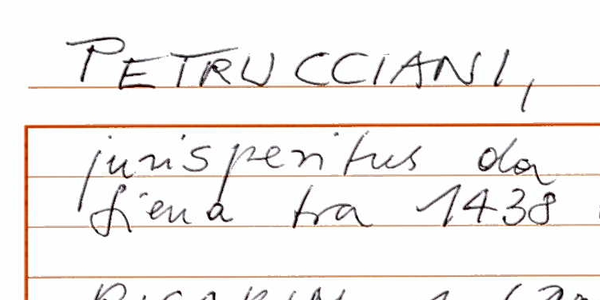 PETRUCCIANI,
jurisperitus da
Siena tra 1438